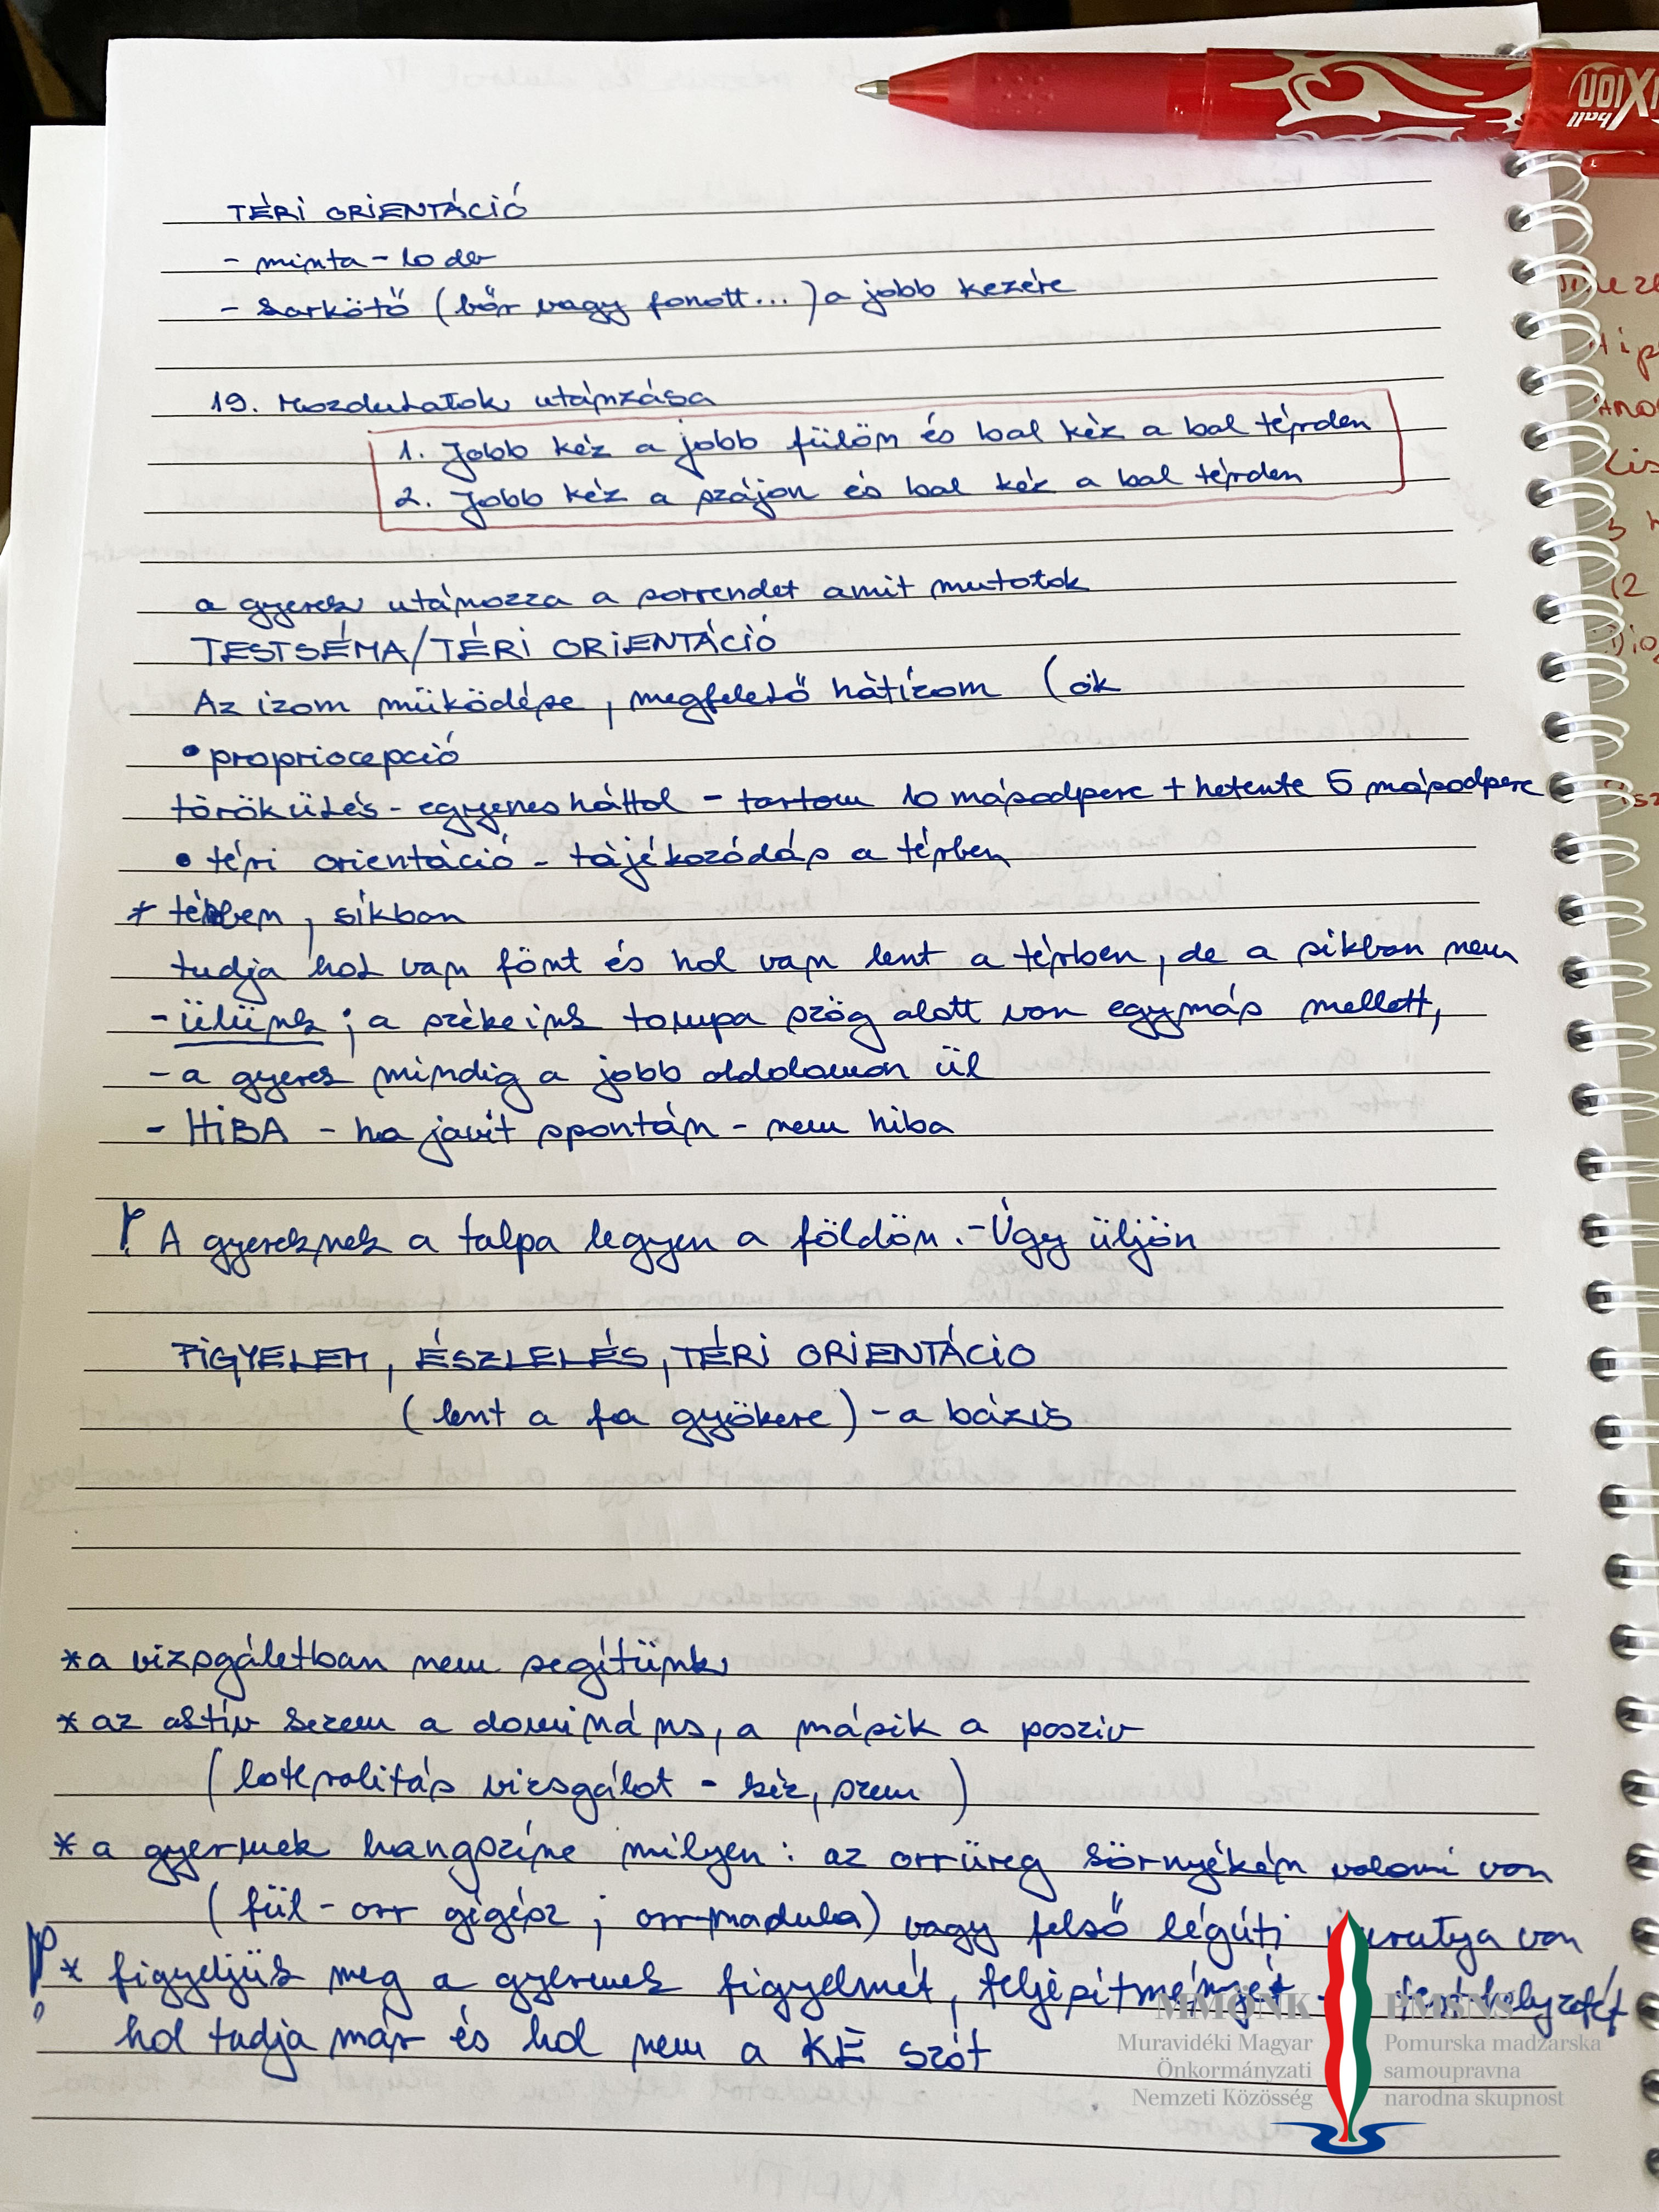 TÉRI ORIENTÁCIÓ
- minta -
- karkötő (bőr vagy fonott...) a jobb kezére
19. Mozdulatok utánzása
1. Jobb kéz a jobb fülön és bal kéz a bal térden
2. Jobb kéz a szájon és bal kéz a bal térden
a gyerek utánozza a sorrendet amit mutatok
TESTSÉMA/TÉRI ORIENTÁCIÓ
Az izom működése, megfelelő hátizom (ok
• propriocepció
törökülés - egyenes háttal - tartom 10 másodperc + hetente 5 másodperc
• téri orientáció - tájékozódás a térben
* térben, síkban
tudja hol van fönt és hol van lent a térben, de a síkban nem
- ülünk; a székeink tompa szög alatt van egymás mellett,
- a gyerek mindig a jobb oldalamon ül
- HIBA - ha javít spontán - nem hiba
! A gyereknek a talpa legyen a földön. - Úgy üljön
FIGYELEM, ÉSZLELÉS, TÉRI ORIENTÁCIÓ
(lent a fa gyökere) - a bázis
* a vizsgáletban nem segítünk
* az aktív kezem a domináns, a másik a passzív
(lateralitás vizsgálat - kéz, szem)
* a gyermek hangszíne milyen: az orrüreg környékén valami van
(fül-orr gégész; orrmadula) vagy felső légúti huratja van
! * figyeljük meg a gyermek figyelmét, teljesítményét - testhelyzetét
hol tudja már és hol nem a KÉ szót
FRIXION ball
MMÖNK
Muravidéki Magyar
Önkormányzati
Nemzeti Közösség
PMSNS
Pomurska madžarska
samoupravna
narodna skupnost